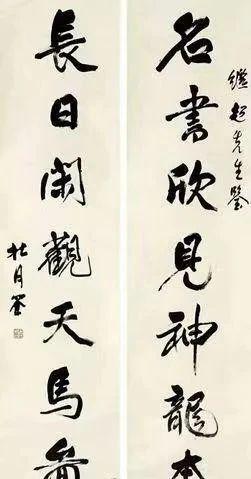 繼超先生鑒
名書欣見神龍本
長日閑觀天馬
杜月笙